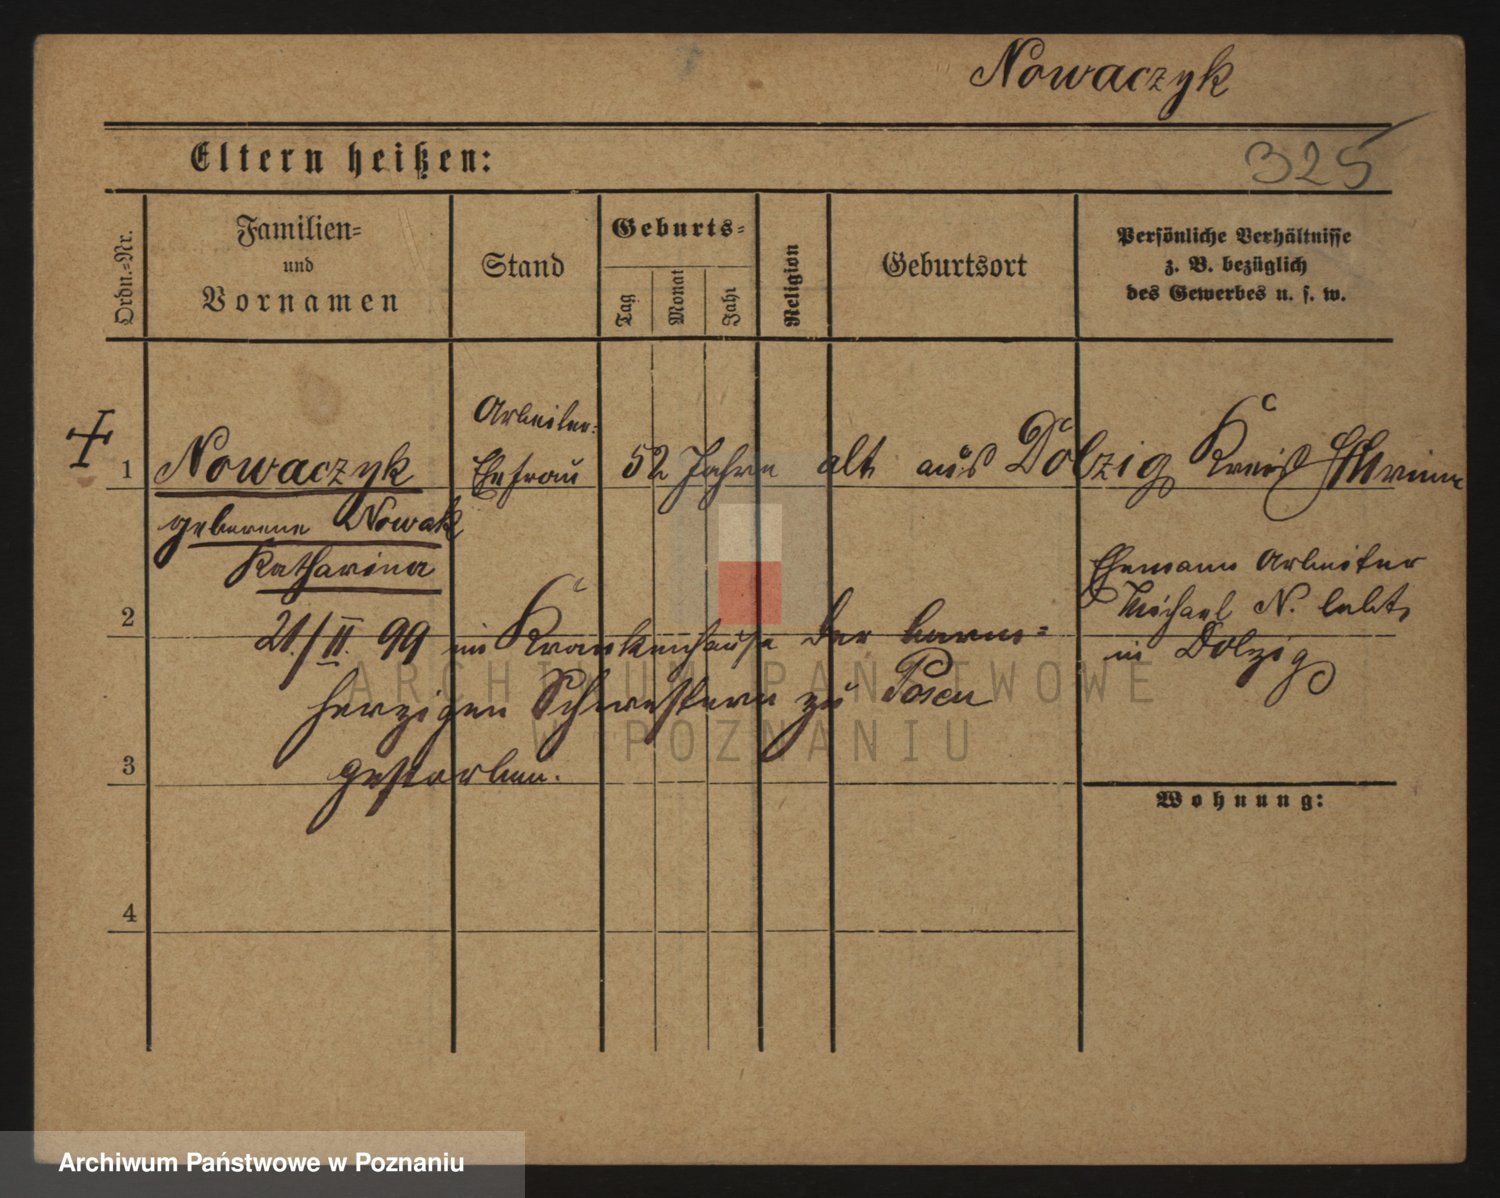 Nowaczyk
Eltern heißen:
325
Ordn.-Nr.
Familien-
und
Vornamen
Stand
Geburts-
Tag
Monat
Jahr
Religion
Geburtsort
Persönliche Verhältnisse
z. B. bezüglich
des Gewerbes u. s. w.
Arbeiter-
1 Nowaczyk Ehefrau 52 Jahre alt aus Dolzig Kreis Schrimm
geborene Nowak
Katharina
Ehemann Arbeiter
Michael N. lebt
in Dolzig
2
21./II. 99 im Krankenhause der barm-
herzigen Schwestern zu Posen
gestorben.
3
Wohnung:
4
ARCHIWUM PAŃSTWOWE
W POZNANIU
Archiwum Państwowe w Poznaniu